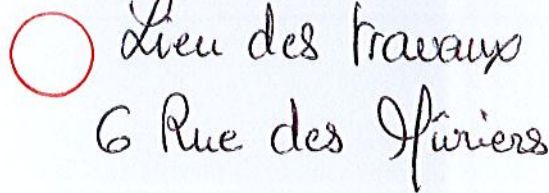 Lieu des travaux
6 Rue des Mûriers